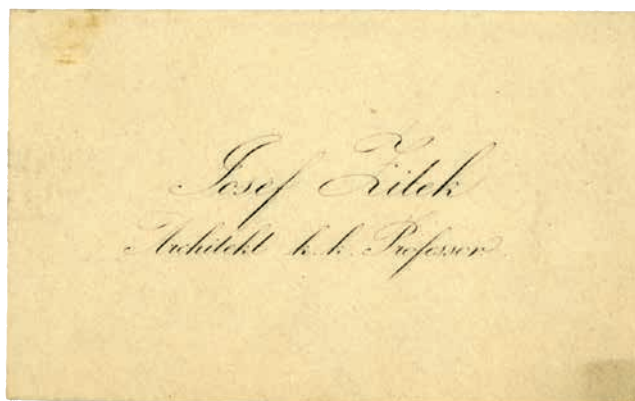 Josef Zitek
Architekt k. k. Professor